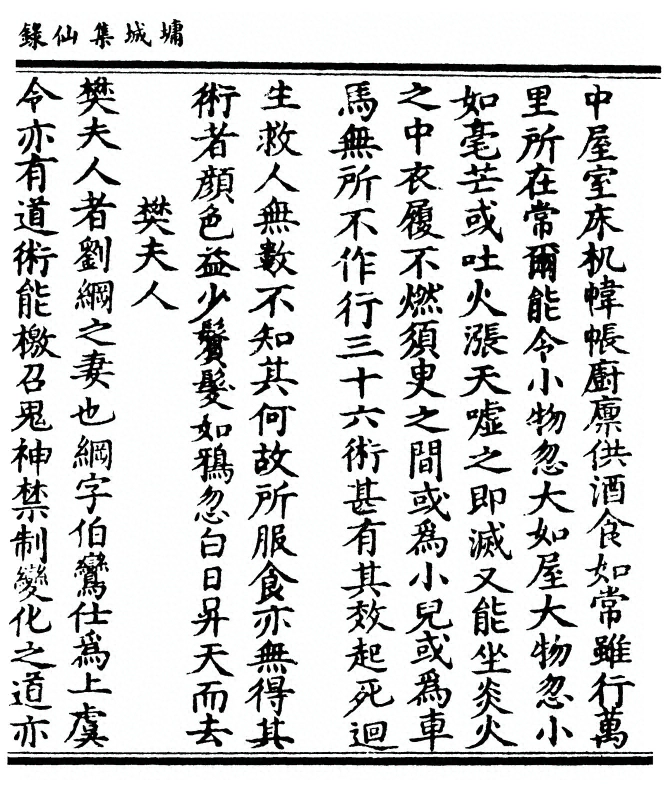 墉城集仙錄
中屋室床机幃帳廚廩供酒食如常雖行萬
里所在常爾能令小物忽大如屋大物忽小
如毫芒或吐火漲天噓之即滅又能坐炎火
之中衣履不燃須臾之間或爲小兒或爲車
馬無所不作行三十六術甚有其效起死迴
生救人無數不知其何故所服食亦無得其
術者顔色益少鬢髮如鴉忽白日昇天而去
樊夫人
樊夫人者劉綱之妻也綱字伯鸞仕爲上虞
令亦有道術能檄召鬼神禁制變化之道亦